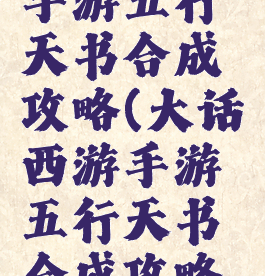 手游五行
天书合成
攻略(大话
西游手游
五行天书
合成攻略